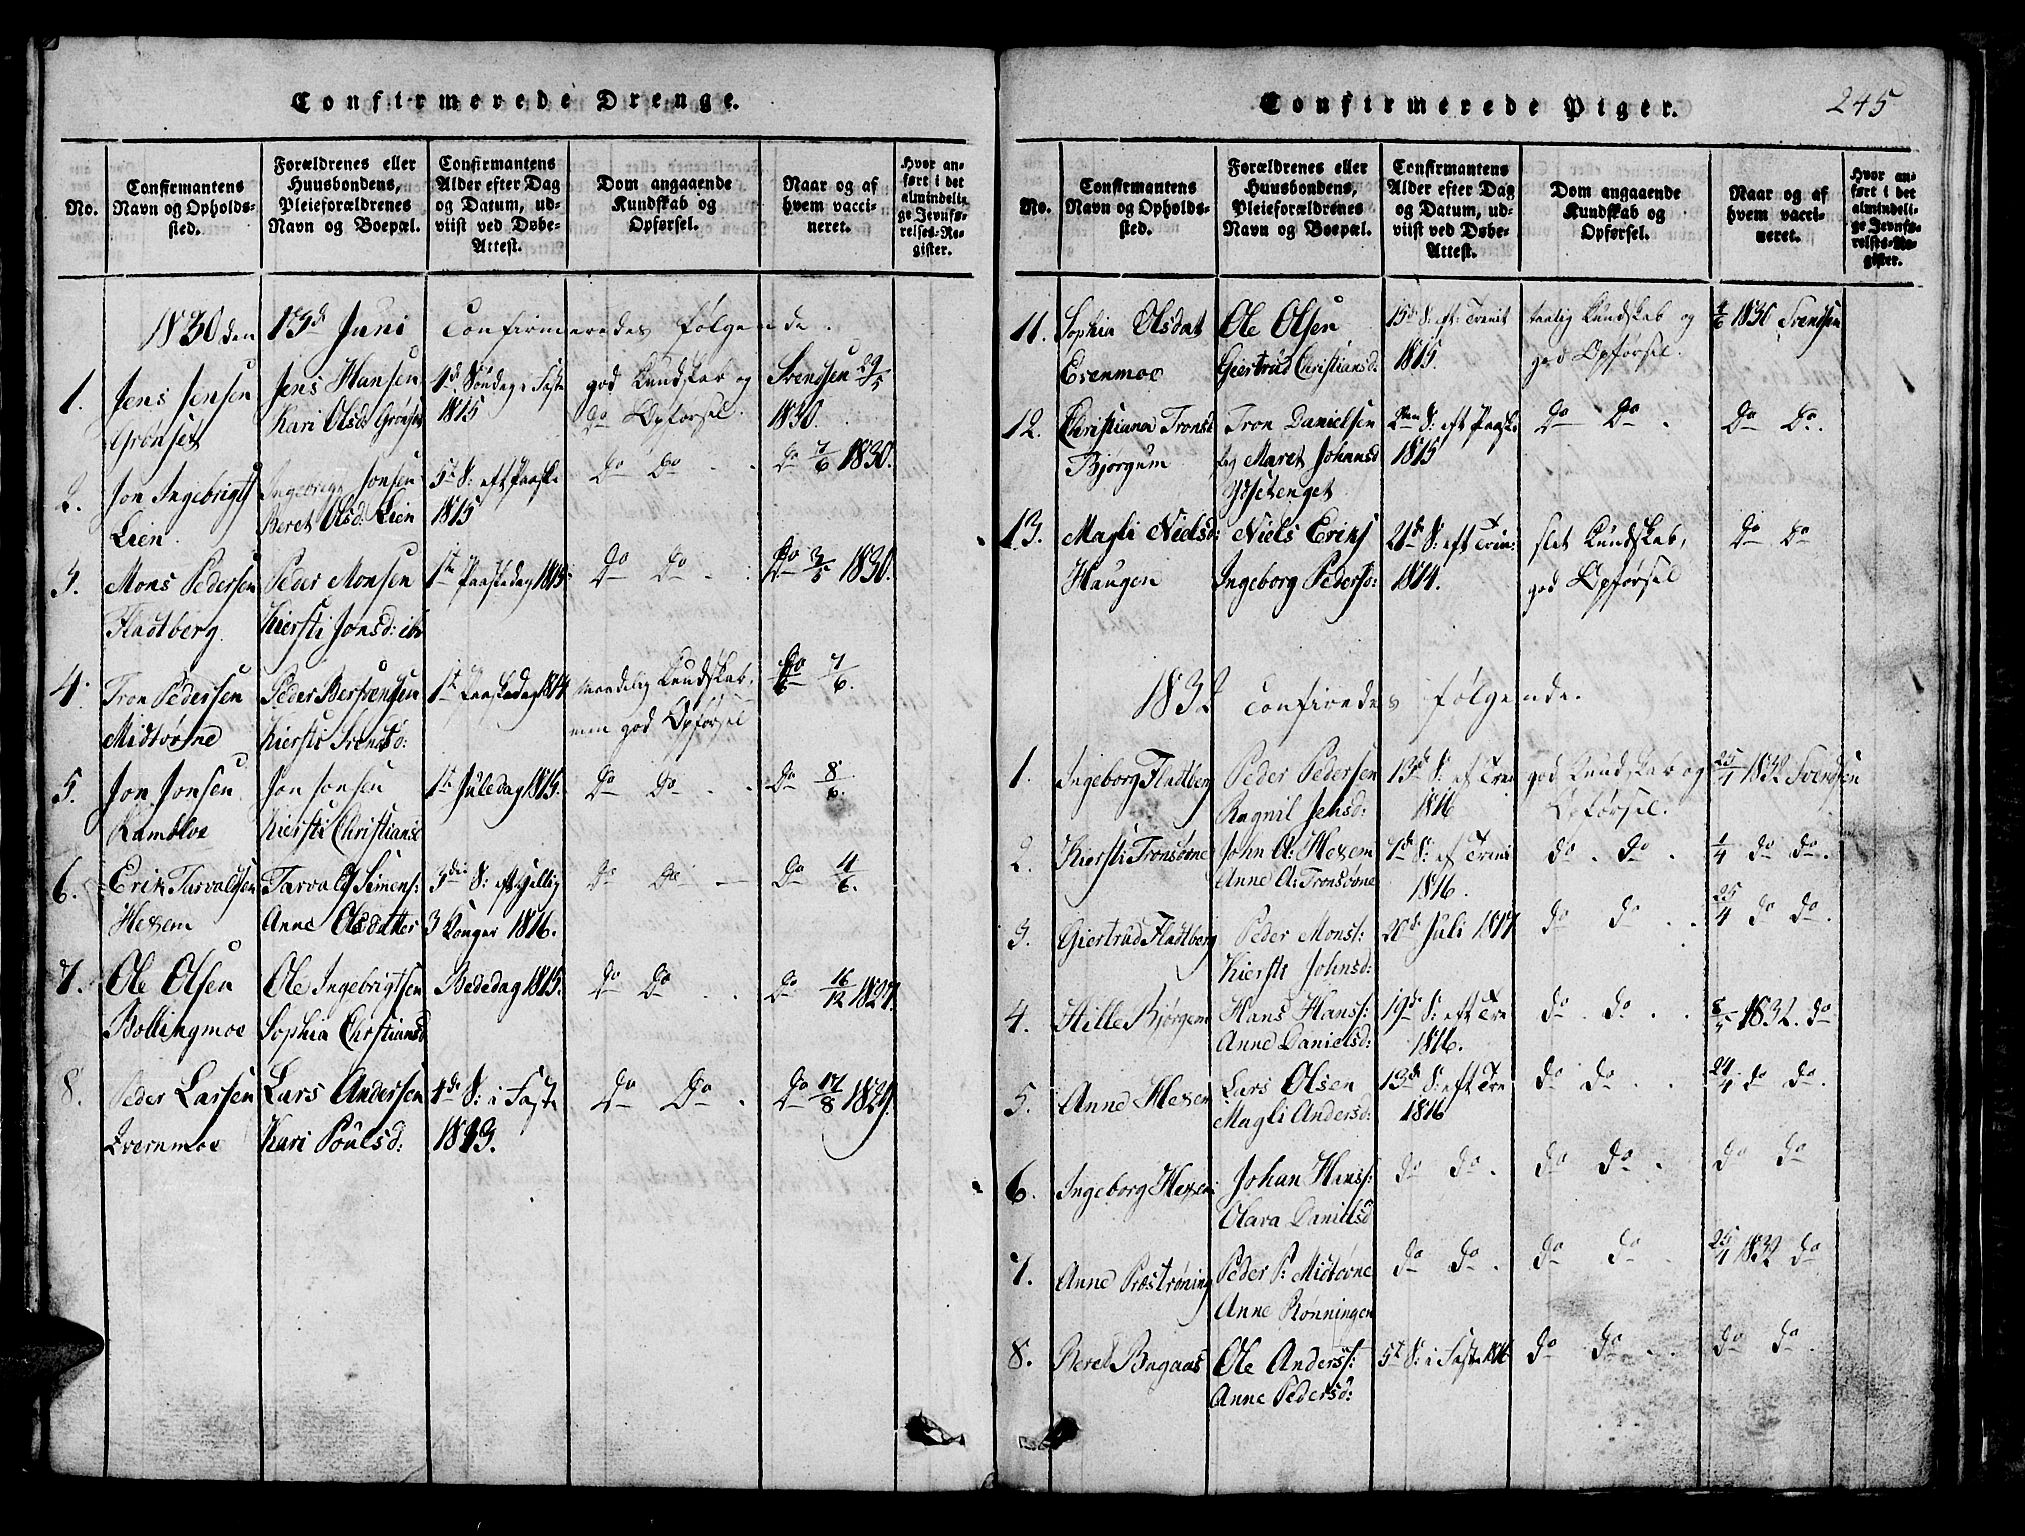 Confirmerede Drenge.
No.
Confirmantens Navn og Opholdssted.
Forældrenes eller Huusbondens, Pleieforældrenes Navn og Boepæl.
Confirmantens Alder efter Dag og Datum, udviist ved Døbe-Attest.
Dom angaaende Kundskab og Opførsel.
Naar og af hvem vaccineret.
Hvor anført i det almindelige Jevnførelses-Register.
1830 den 13de Juni Confirmeredes følgende.
1. Jens Jensen Jens Hansen 4d Søndag i Faste god Kundskab og Svendsen 29/5
Grønset Kari Olsd: Grønset 1815 do Opførsel. 1830.
2. Jon Ingebrigts Ingebrigt Jonsen 5te S: eft Paaske Do Do Do 7/6 1830.
Lien Beret Olsd: Lien 1815
3. Mons Pedersen Peder Monsen 1te Paaskedag 1815 Do Do Do 3/5 1830.
Fladtberg. Kiersti Jonsd: ibd
4. Tron Pedersen Peder Berntzensen 1te Paaskedag 1814 maadelig Kundskab, Do 7/6.
Midtvovne Kiersti Svendsd: men god Opførsel
5. Jon Jonsen Jon Jonsen 1te Juledag 1815. Do Do Do 8/6.
Ramoloe Kiersti Christiansd
6. Erik Tarvaldsen Tarvald Simens: 3die S: eft Hellig Do Do Do 4/6.
Hexem Anne Olsdatter 3 Konger 1816.
7. Ole Olsen Ole Ingebrigtsen Bededag 1815. Do Do Do 16/12 1827.
Bollingmoe Sophia Christiansd
8. Peder Larsen Lars Andersen 4de S: i Faste Do Do Do 17/8 1829.
Evernmoe Kari Poulsd: 1813.
Confirmerede Piger.
245
No.
Confirmantens Navn og Opholdssted.
Forældrenes eller Huusbondens, Pleieforældrenes Navn og Boepæl.
Confirmantens Alder efter Dag og Datum, udviist ved Døbe-Attest.
Dom angaaende Kundskab og Opførsel.
Naar og af hvem vaccineret.
Hvor anført i det almindelige Jevnførelses-Register.
11. Sophia Olsdat Ole Olsen 15de S: eft: Trenit taalig Kundskab og 4/6 1830 Svendsen
Evenmoe Giertrud Christiansd: 1815. god Opførsel.
12. Christiana Tronsd Tron Danielsen 2den S: eft Paaske Do Do Do Do.
Bjørgum og Maret Johansd 1815
Ysetenget
13. Magli Nielsd: Niels Eriks 21de S: eft Trin: slet Kundskab, Do Do
Haugen Ingeborg Pedersd: 1814. god Opførsel
1832 Confiredes følgende.
1. Ingeborg Fladtberg Peder Pedersen 13de S: ef Trin god Kundskab og 25/4 1832 Svendsen
Ragnil Jensd: 1816 Opførsel.
2. Kiersti Tronsvovne John A: Hexem 7de S: ef Trinit do. do. 1/4 do do.
Anne A: Tronsvovne 1816.
3. Giertrud Fladtberg Peder Mons: 20de Juli 1817 do do 25/4 do do.
Kiersti Johnsd:
4. Hille Bjørgem Hans Hans: 19de S: eft Tre do. do. 8/5 1832. do
Anne Danielsd: 1816.
5. Anne Hexem Lars Olsen 13de S: eft Tre do do. 24/4 do do.
Magli Andersd: 1816
6. Ingeborg Hexem Johan Hans: do do. do do. do do
Olava Danielsd
7. Anne Præstrøning Peder P: Midtvovne do do. do do. 25/4 1832 do
Anne Rønningen
8. Beret Bagaas Ole Anders: 5te S: i Faste 1816 do do. do do.
Anne Pedersd: